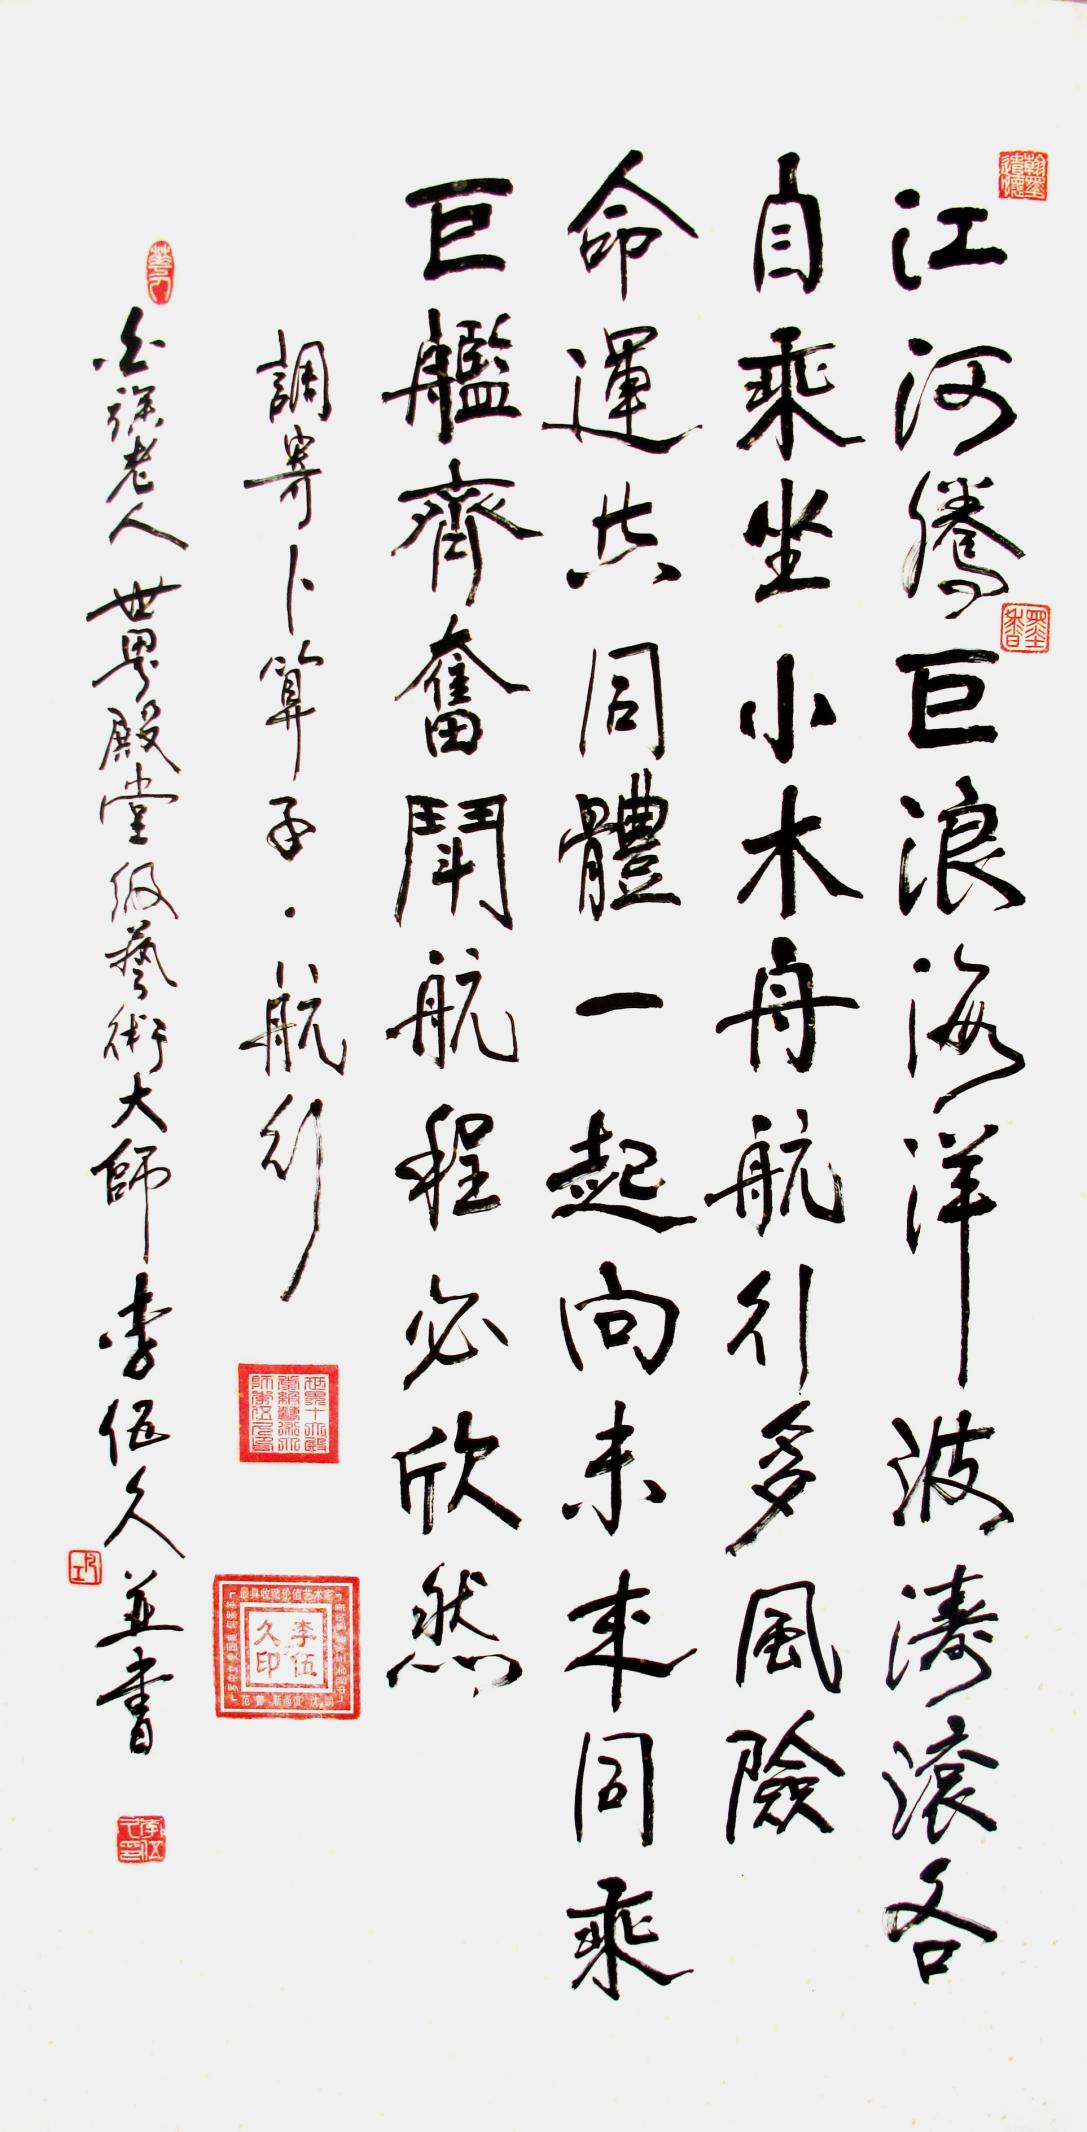 江河騰巨浪海洋波濤滾各
自乘坐小木舟航行多風險
命運共同體一起向未來同乘
巨艦齊奮鬪航程必欣然
調寄卜算子·航行
老人世界殿堂級藝術大師李伍久並書
翰墨遣懷
墨香
最具收藏价值艺术家
李伍久印